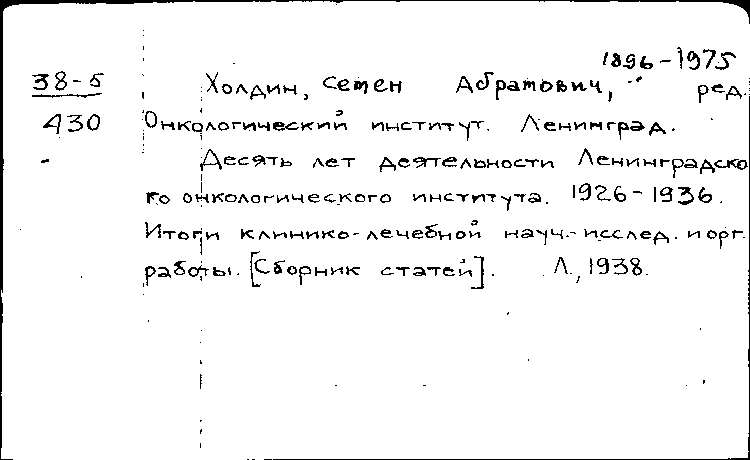 1896-1975
38-5 Холдин, Семен Абрамович, ред.
430 Онкологический институт. Ленинград.
- Десять лет деятельности Ленинградско
го онкологического института. 1926-1936.
Итоги клинико-лечебной науч.-исслед. и орг.
работы. [Сборник статей]. Л., 1938.